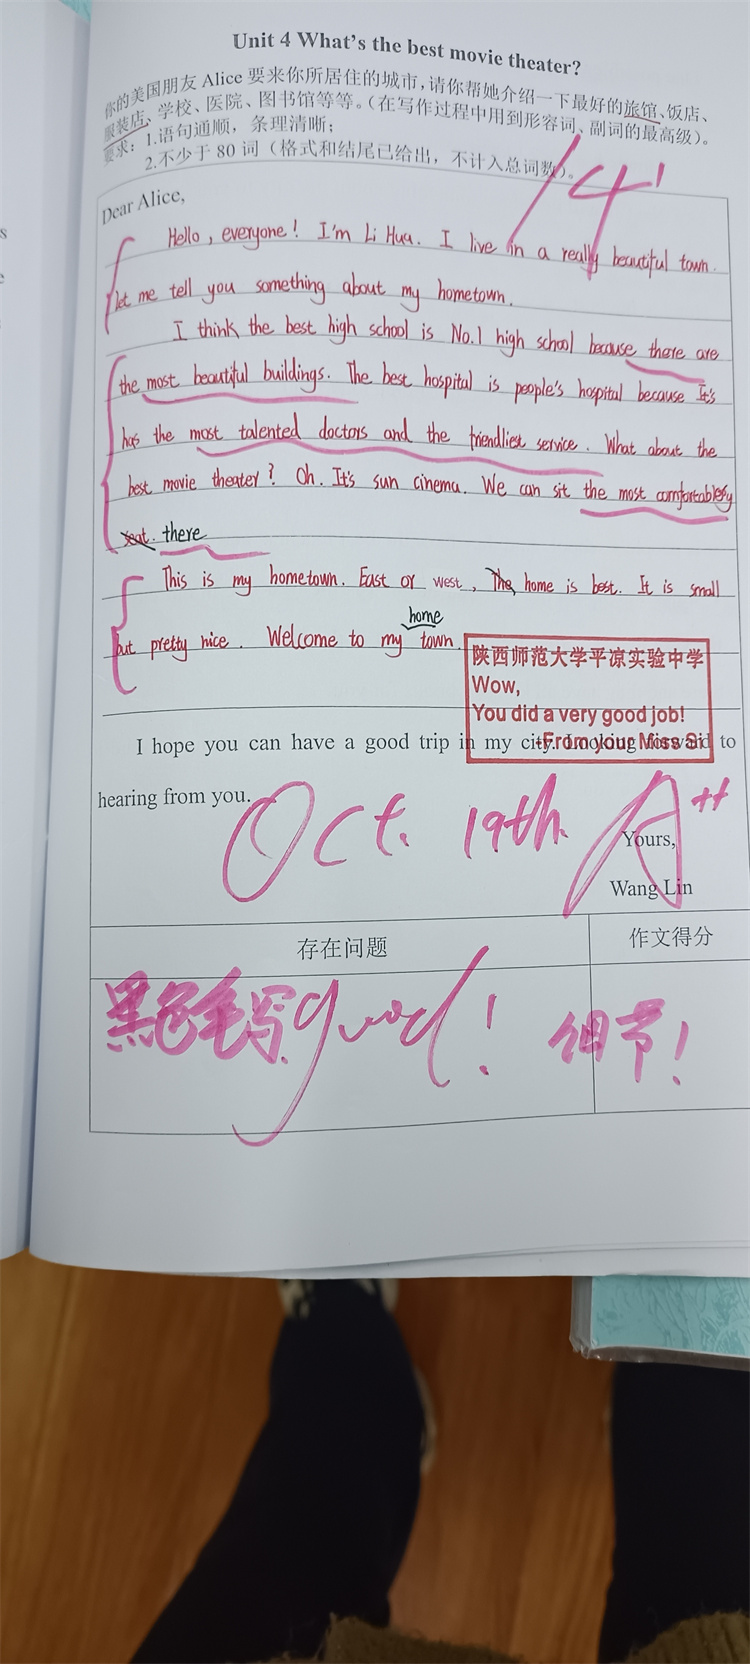 Unit 4 What's the best movie theater?
你的美国朋友 Alice 要来你所居住的城市,请你帮她介绍一下最好的旅馆、饭店、
服装店、学校、医院、图书馆等等。(在写作过程中用到形容词、副词的最高级)。
要求: 1.语句通顺，条理清晰；
2.不少于 80 词（格式和结尾已给出，不计入总词数）。
14'
Dear Alice,
Hello, everyone! I'm Li Hua. I live in a really beautiful town.
let me tell you something about my hometown.
I think the best high school is No.1 high school because there are
the most beautiful buildings. The best hospital is people's hospital because It's
has the most talented doctors and the friendliest service. What about the
best movie theater? Oh. It's sun cinema. We can sit the most comfortablely
seat. there
This is my hometown. East or west, The home is best. It is small
home
but pretty nice. Welcome to my town.
陕西师范大学平凉实验中学
Wow,
You did a very good job!
-From your Miss Si
I hope you can have a good trip in my city. Looking forward to
hearing from you.
Oct. 19th. A++
Yours,
Wang Lin
存在问题
作文得分
黑色笔写. good! 细节!
s